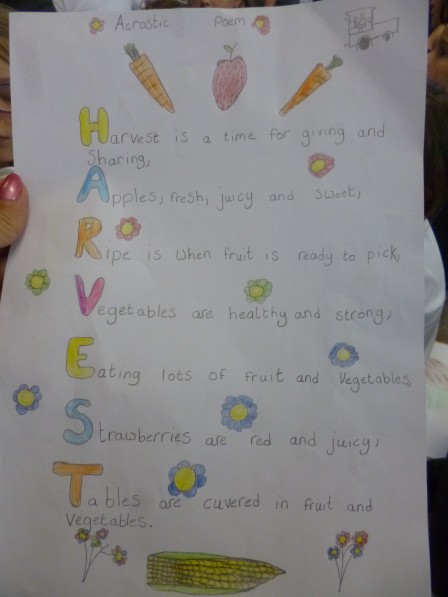 Acrostic Poem
Harvest is a time for giving and
Sharing,
Apples, fresh, juicy and sweet,
Ripe is when fruit is ready to pick,
Vegetables are healthy and strong,
Eating lots of fruit and vegetables,
Strawberries are red and juicy,
Tables are cuvered in fruit and
vegetables.